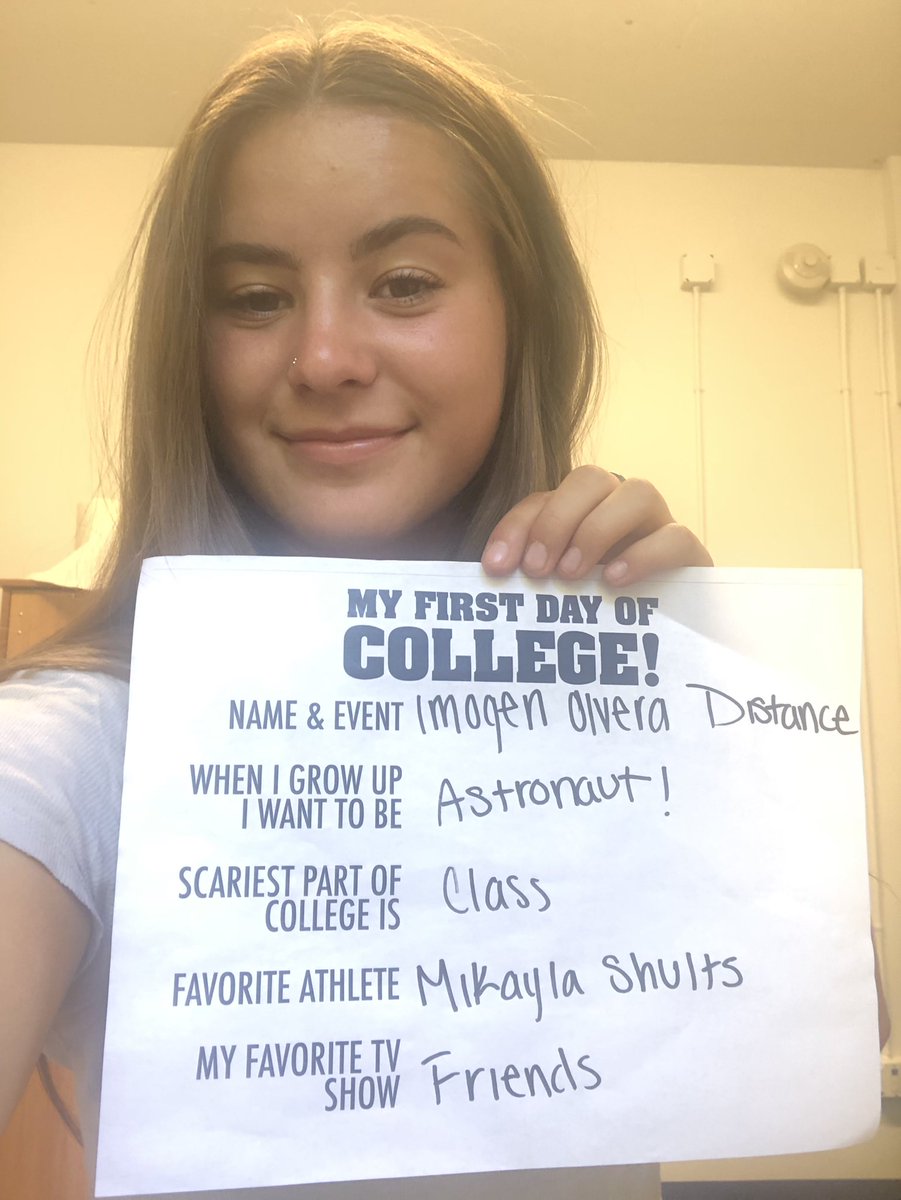 MY FIRST DAY OF
COLLEGE!
NAME & EVENT Imogen Olvera Distance
WHEN I GROW UP
I WANT TO BE Astronaut!
SCARIEST PART OF
COLLEGE IS Class
FAVORITE ATHLETE Mikayla Shults
MY FAVORITE TV
SHOW Friends